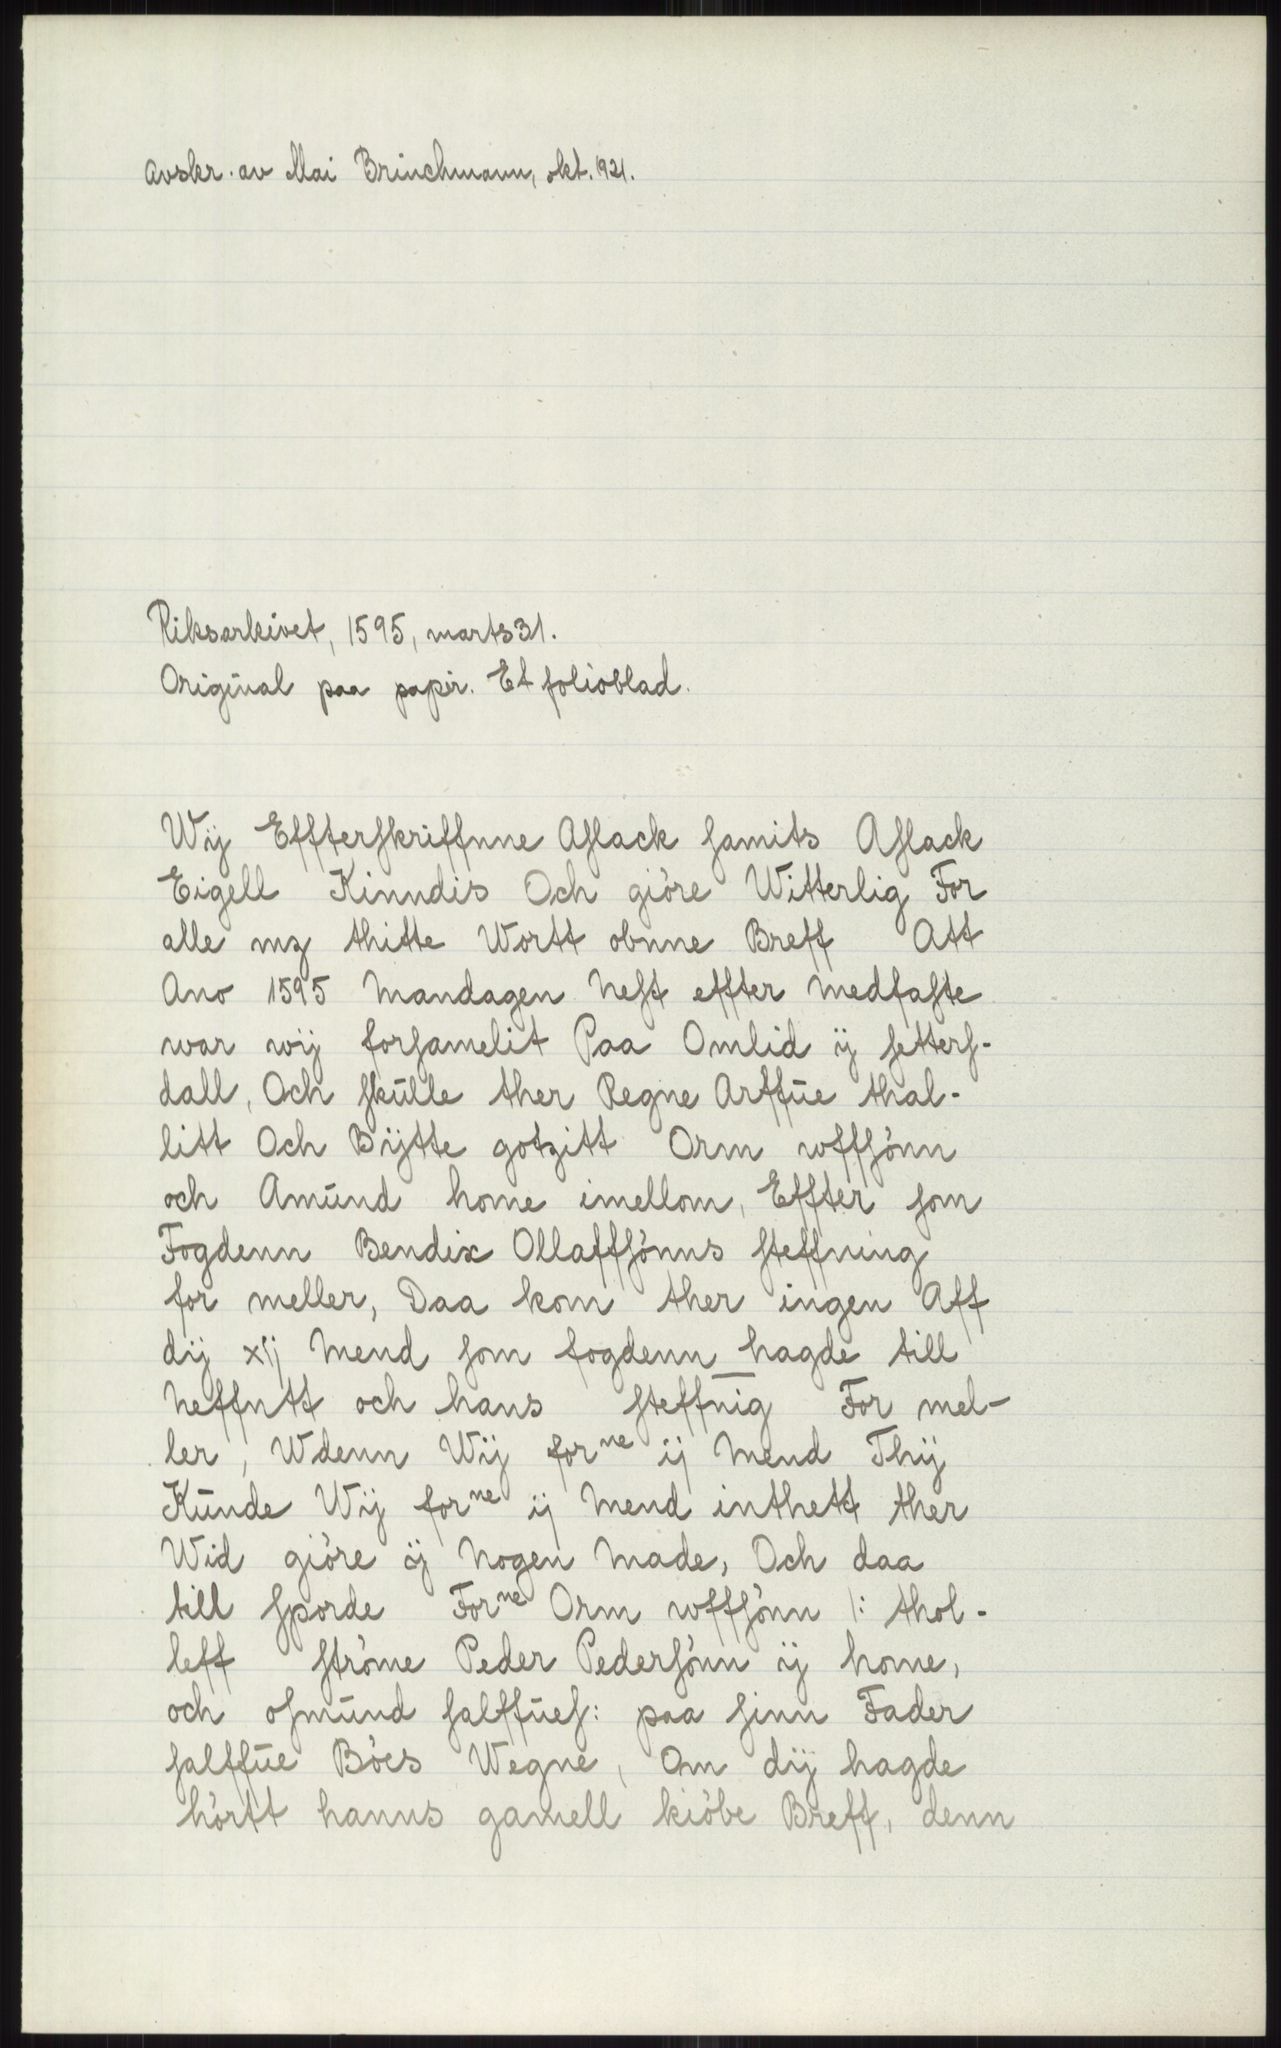 Avskr. av Mai Brinchmann, okt. 1921.
Riksarkivet, 1595, marts 31.
Original paa papir. Et folioblad.
Wij Effterskriffnne Aslack samits Aslack
Eigell Kinndis Och giöre Witterlig For
alle mz thitte Wortt obnne Breff Att
Ano 1595 Mandagen Nest effter Medfaste
war wij forsamelit Paa Omlid ij setters-
dall, Och skulle ther Regne Arffue thal-
litt Och Bijtte gotzitt Orm wlffsönn
och Amund home imellom, Effter som
Fogdenn Bendix Ollaffsönns steffning
for meller, Daa kom ther ingen Aff
dij xij Mend som fogdenn hagde till
Neffntt och hans steffnig For mel-
ler, Wdenn Wij forne ij Mend Thij
Kunde Wij forne ij Mend inthett ther
Wid giöre ij Nogen Made, Och daa
till sporde Forne Orm wlffsönn /: thol-
leff ströme Peder Pedersönn ij home,
och osmund salffues: paa sinn Fader
salffue Böes Wegne, Om dij hagde
hörtt hanns gamell kiöbe Breff, denn